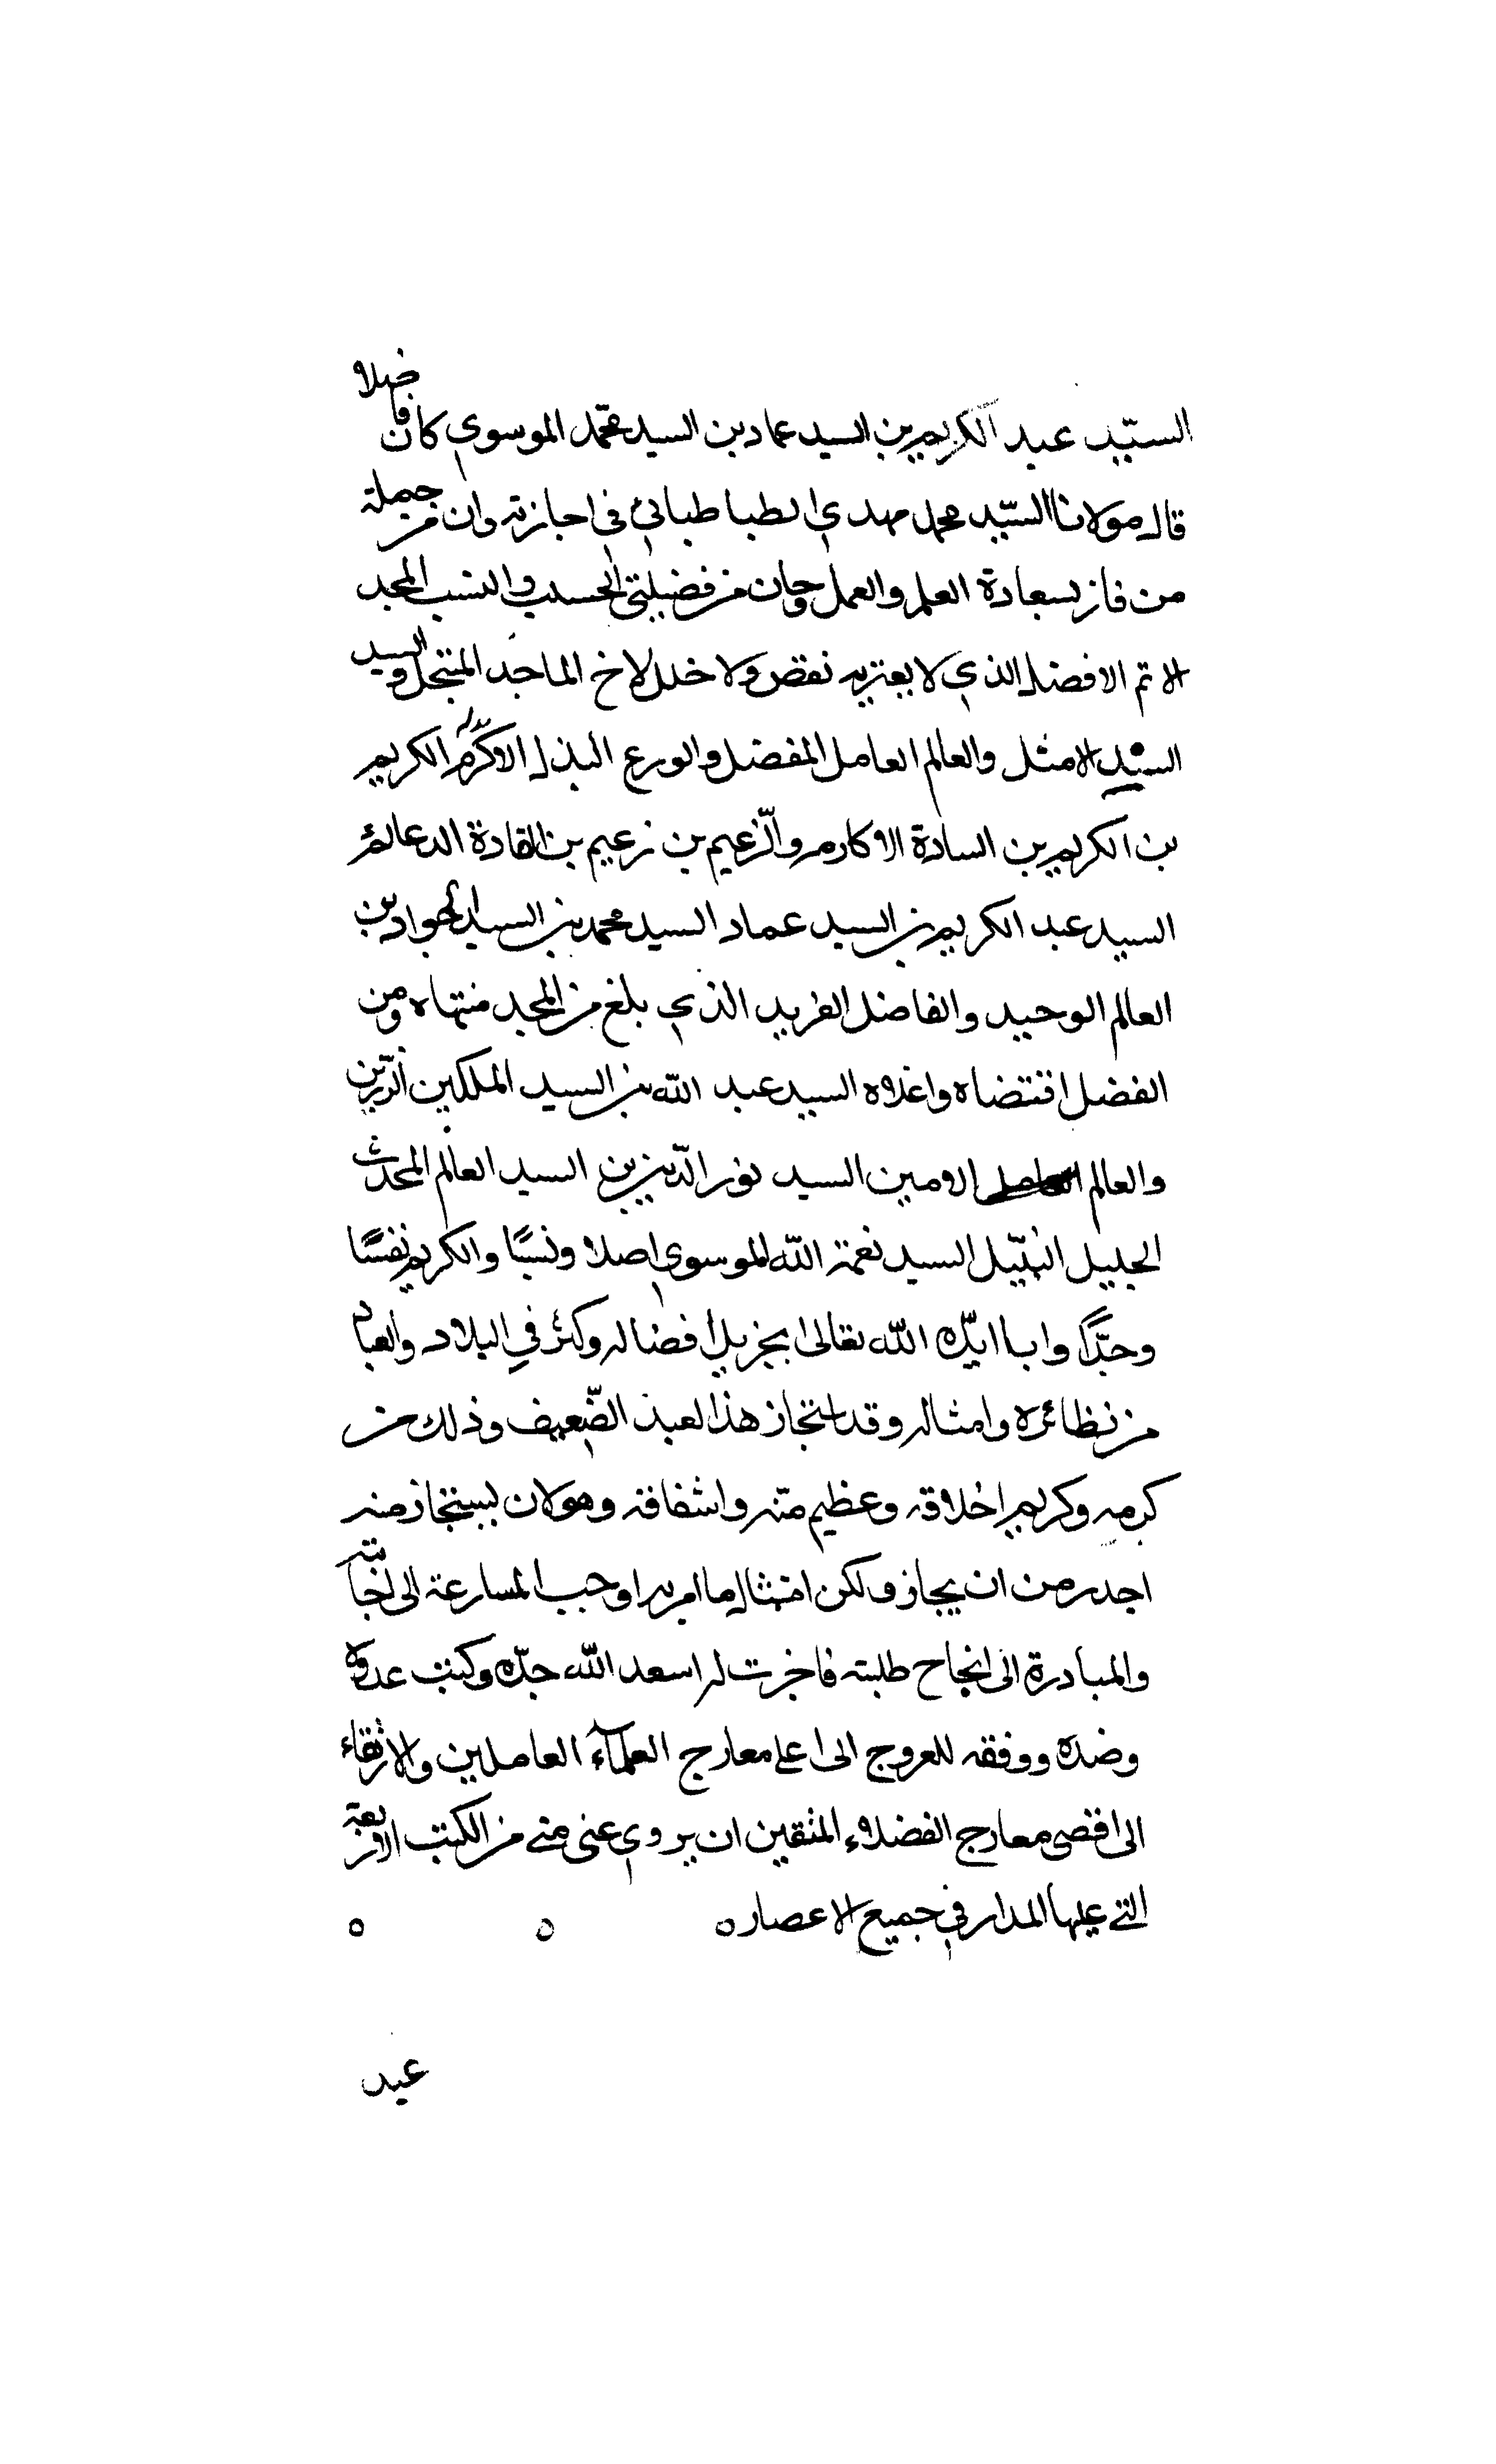 السيّد عبد الكريم بن السيد عماد بن السيد محمّد الموسوي كان فاضلا
قال مولانا السيّد محمد مهدي الطباطبائي في اجازته وان من جملة
من فاز بسعادة العلم والعمل وحان من فضيلتي الحسب والنسب المجد
الاتم الافضل الذي لا يعتريه نقص ولا خلل الاخ الماجد المنتجل والسيد
السند الامثل والعالم العامل المفضل والورع البذل الاكرم الكريم
بن الكريم بن السادة الاكارم والزعيم بن زعيم بن القادة الدعائم
السيد عبد الكريم بن السيد عماد السيد محمد بن السيد الجواد بن
العالم الوحيد والفاضل الفريد الذي بلغ من المجد منتهاه ومن
الفضل اقتضاه واغلاه السيد عبد الله بن السيد الملكين الزين
والعالم الامين السيد نور الدّين بن السيد العالم المحدث
الجليل النبّيل السيد نعمة الله الموسوي اصلا ونسبًا والكريم نفسًا
وجدًّا وابا ايّده الله تعالى بجزيل افضاله وكثر في البلاد والعباد
من نظائره وامثاله وقد استجاز هذا العبد الضّعيف وذلك من
كرمه وكريم اخلاقه وعظيم منّه واشفاقه وهو لان يستجاز منه
اجدر من ان يجاز ولكن امتثال ما امر به اوجب المسارعة الى اجابته
والمبادرة الى انجاح طلبته فاجزت له اسعد الله جدّه وكبت عدوه
وضده ووفقه للعروج الى اعلى معارج العلمآء العاملين والارتقاء
الى اقصى معارج الفضلاء المتقين ان يروي عنى متى من الكتب الاربعة
التي عليها المدار في جميع الاعصار ه ه ه
عبد